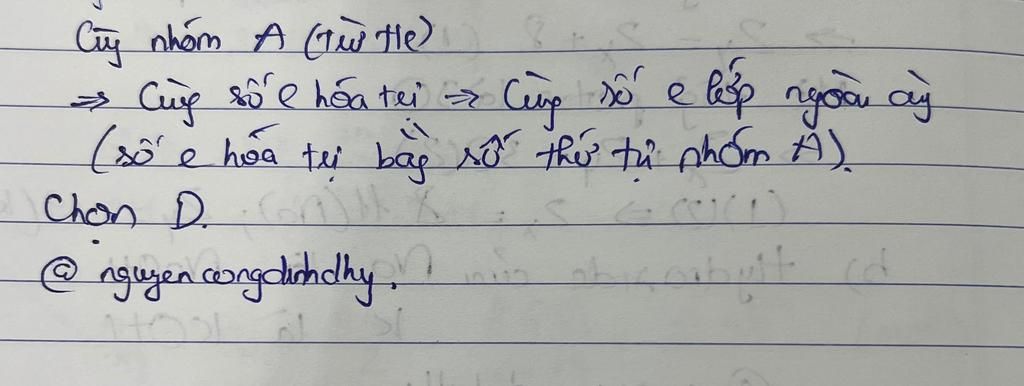 Cùg nhóm A (trừ He)
⇒ Cùg số e hóa trị ⇒ Cùg số e lớp ngoài cùg
(số e hóa trị bằg số thứ tự nhóm A).
Chọn D.
@ nguyencongdinhdhy.